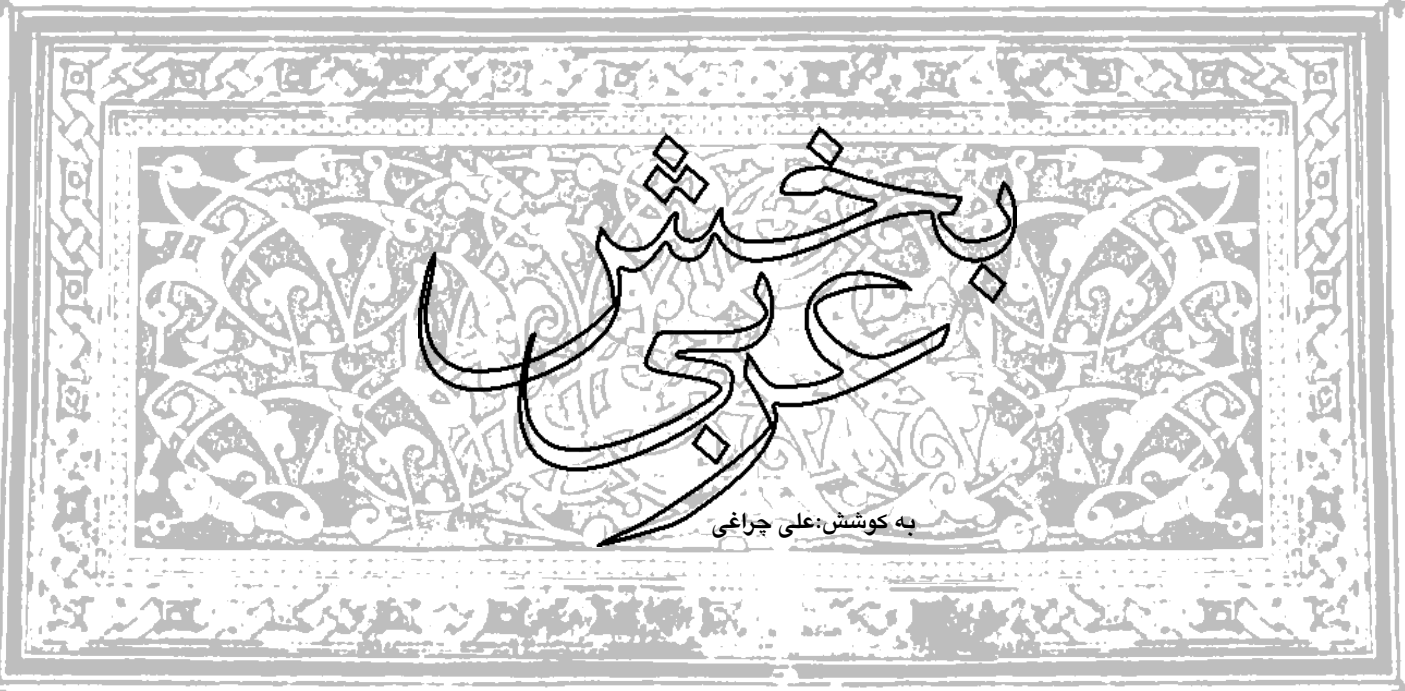 بخش
عربی
به کوشش:علی چراغی